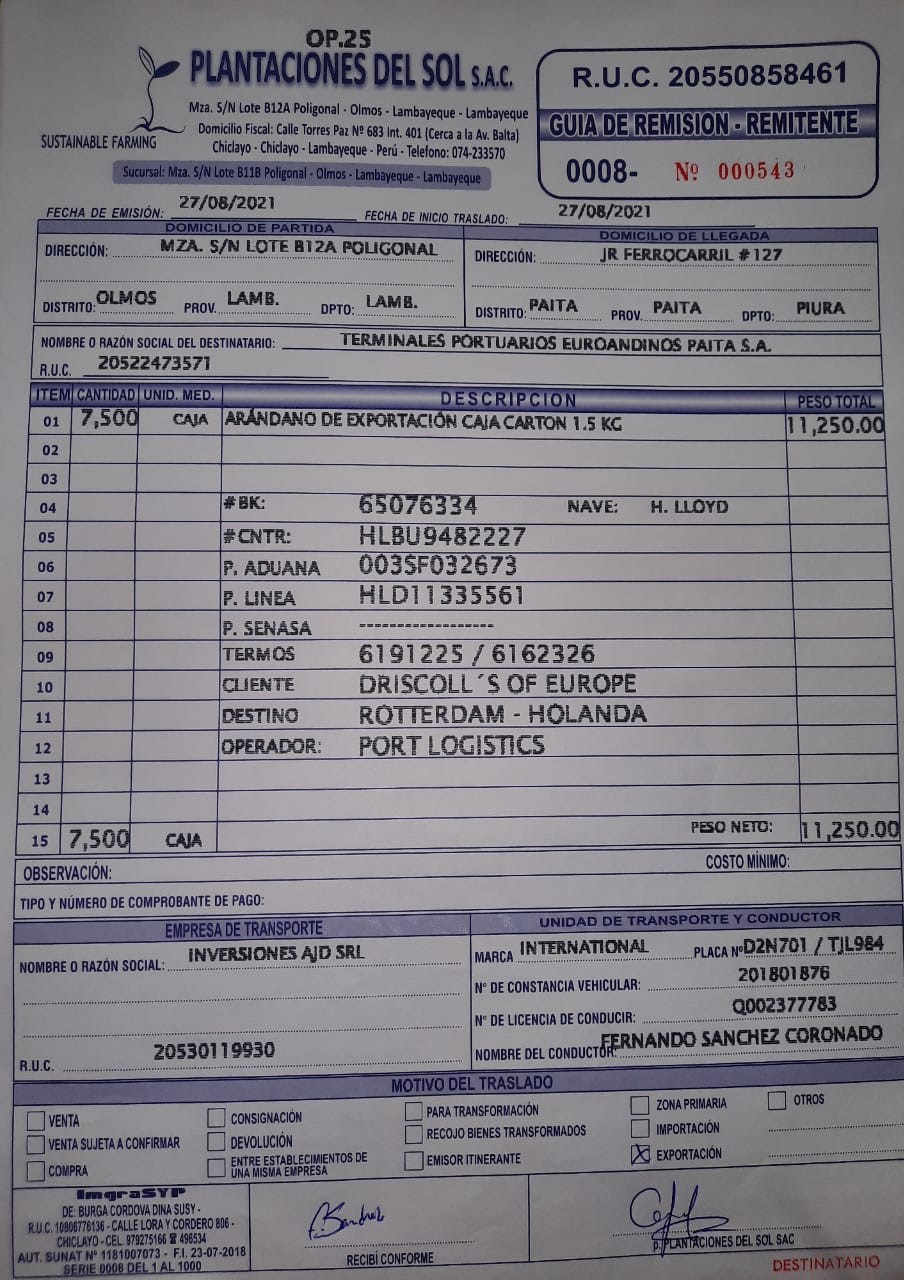 OP.25
PLANTACIONES DEL SOL S.A.C.
Mza. S/N Lote B12A Poligonal - Olmos - Lambayeque - Lambayeque
Domicilio Fiscal: Calle Torres Paz Nº 683 Int. 401 (Cerca a la Av. Balta)
Chiclayo - Chiclayo - Lambayeque - Perú - Telefono: 074-233570
SUSTAINABLE FARMING
Sucursal: Mza. S/N Lote B11B Poligonal - Olmos - Lambayeque - Lambayeque
R.U.C. 20550858461
GUIA DE REMISION - REMITENTE
0008- Nº 000543
FECHA DE EMISIÓN: 27/08/2021 FECHA DE INICIO TRASLADO: 27/08/2021
DOMICILIO DE PARTIDA
DIRECCIÓN: MZA. S/N LOTE B12A POLIGONAL
DISTRITO: OLMOS PROV. LAMB. DPTO: LAMB.
DOMICILIO DE LLEGADA
DIRECCIÓN: JR FERROCARRIL #127
DISTRITO: PAITA PROV. PAITA DPTO: PIURA
NOMBRE O RAZÓN SOCIAL DEL DESTINATARIO: TERMINALES PORTUARIOS EUROANDINOS PAITA S.A.
R.U.C. 20522473571
ITEM CANTIDAD UNID. MED. DESCRIPCION PESO TOTAL
01 7,500 CAJA ARÁNDANO DE EXPORTACIÓN CAJA CARTON 1.5 KG 11,250.00
02
03
04 #BK: 65076334 NAVE: H. LLOYD
05 #CNTR: HLBU9482227
06 P. ADUANA 003SF032673
07 P. LINEA HLD11335561
08 P. SENASA ------------------
09 TERMOS 6191225 / 6162326
10 CLIENTE DRISCOLL´S OF EUROPE
11 DESTINO ROTTERDAM - HOLANDA
12 OPERADOR: PORT LOGISTICS
13
14
15 7,500 CAJA PESO NETO: 11,250.00
OBSERVACIÓN: COSTO MÍNIMO:
TIPO Y NÚMERO DE COMPROBANTE DE PAGO:
EMPRESA DE TRANSPORTE
NOMBRE O RAZÓN SOCIAL: INVERSIONES AJD SRL
R.U.C. 20530119930
UNIDAD DE TRANSPORTE Y CONDUCTOR
MARCA INTERNATIONAL PLACA Nº D2N701 / TJL984
N° DE CONSTANCIA VEHICULAR: 201801876
N° DE LICENCIA DE CONDUCIR: Q002377783
NOMBRE DEL CONDUCTOR: FERNANDO SANCHEZ CORONADO
MOTIVO DEL TRASLADO
VENTA CONSIGNACIÓN PARA TRANSFORMACIÓN ZONA PRIMARIA OTROS
VENTA SUJETA A CONFIRMAR DEVOLUCIÓN RECOJO BIENES TRANSFORMADOS IMPORTACIÓN
COMPRA ENTRE ESTABLECIMIENTOS DE UNA MISMA EMPRESA EMISOR ITINERANTE X EXPORTACIÓN
ImgraSYP
DE: BURGA CORDOVA DINA SUSY -
R.U.C. 10806776136 - CALLE LORA Y CORDERO 806 -
CHICLAYO - CEL. 979275166 ☎ 496534
AUT. SUNAT Nº 1181007073 - F.I. 23-07-2018
SERIE 0008 DEL 1 AL 1000
RECIBÍ CONFORME
P. PLANTACIONES DEL SOL SAC
DESTINATARIO